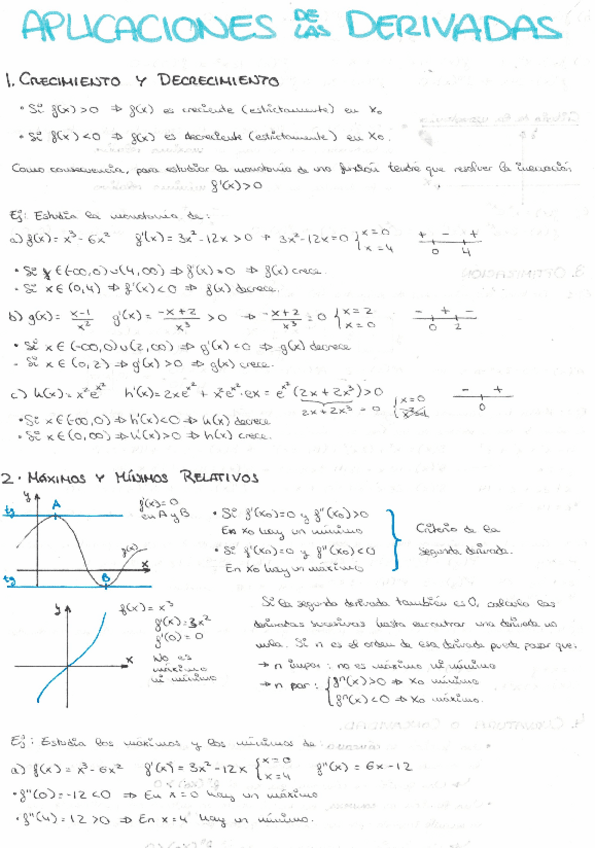 APLICACIONES DE LAS DERIVADAS
1. CRECIMIENTO Y DECRECIMIENTO
• Si f(x) > 0 ⇒ f(x) es creciente (estrictamente) en x₀
• Si f(x) < 0 ⇒ f(x) es decreciente (estrictamente) en x₀.
Como consecuencia, para estudiar la monotonía de una función tendré que resolver la inecuación:
f'(x) > 0
Ej: Estudia la monotonía de:
a) f(x) = x³ - 6x² f'(x) = 3x² - 12x > 0 → 3x² - 12x = 0 { x = 0 x = 4 + - + 0 4
• Si x ∈ (-∞, 0) ∪ (4, ∞) ⇒ f'(x) > 0 ⇒ f(x) crece.
• Si x ∈ (0, 4) ⇒ f'(x) < 0 ⇒ f(x) decrece.
b) g(x) = x-1/x² g'(x) = -x+2/x³ > 0 → -x+2/x³ = 0 { x = 2 x = 0 - + - 0 2
• Si x ∈ (-∞, 0) ∪ (2, ∞) ⇒ g'(x) < 0 ⇒ g(x) decrece
- Si x ∈ (0, 2) ⇒ g'(x) > 0 ⇒ g(x) crece.
c) h(x) = x²e^x² h'(x) = 2xe^x² + x²e^x²·2x = e^x² (2x + 2x³) > 0 - + 0
2x + 2x³ = 0 { x = 0
• Si x ∈ (-∞, 0) ⇒ h'(x) < 0 ⇒ h(x) decrece
• Si x ∈ (0, ∞) ⇒ h'(x) > 0 ⇒ h(x) crece.
2. MÁXIMOS Y MÍNIMOS RELATIVOS
y A tg B tg x f(x)
f'(x) = 0
en A y B
• Si f'(x₀) = 0 y f''(x₀) > 0
En x₀ hay un mínimo
• Si f'(x₀) = 0 y f''(x₀) < 0
En x₀ hay un máximo
Criterio de la
segunda derivada.
y x
f(x) = x³
f'(x) = 3x²
f'(0) = 0
No es
máximo
ni mínimo
Si la segunda derivada también es 0, calculo las
derivadas sucesivas hasta encontrar una derivada no
nula. Si n es el orden de esa derivada puede pasar que:
→ n impar: no es máximo ni mínimo
→ n par: { fⁿ(x) > 0 ⇒ x₀ mínimo
fⁿ(x) < 0 ⇒ x₀ máximo.
Ej: Estudia los máximos y los mínimos de:
a) f(x) = x³ - 6x² f'(x) = 3x² - 12x { x = 0 x = 4 f''(x) = 6x - 12
• f''(0) = -12 < 0 ⇒ En x = 0 hay un máximo
• f''(4) = 12 > 0 ⇒ En x = 4 hay un mínimo.